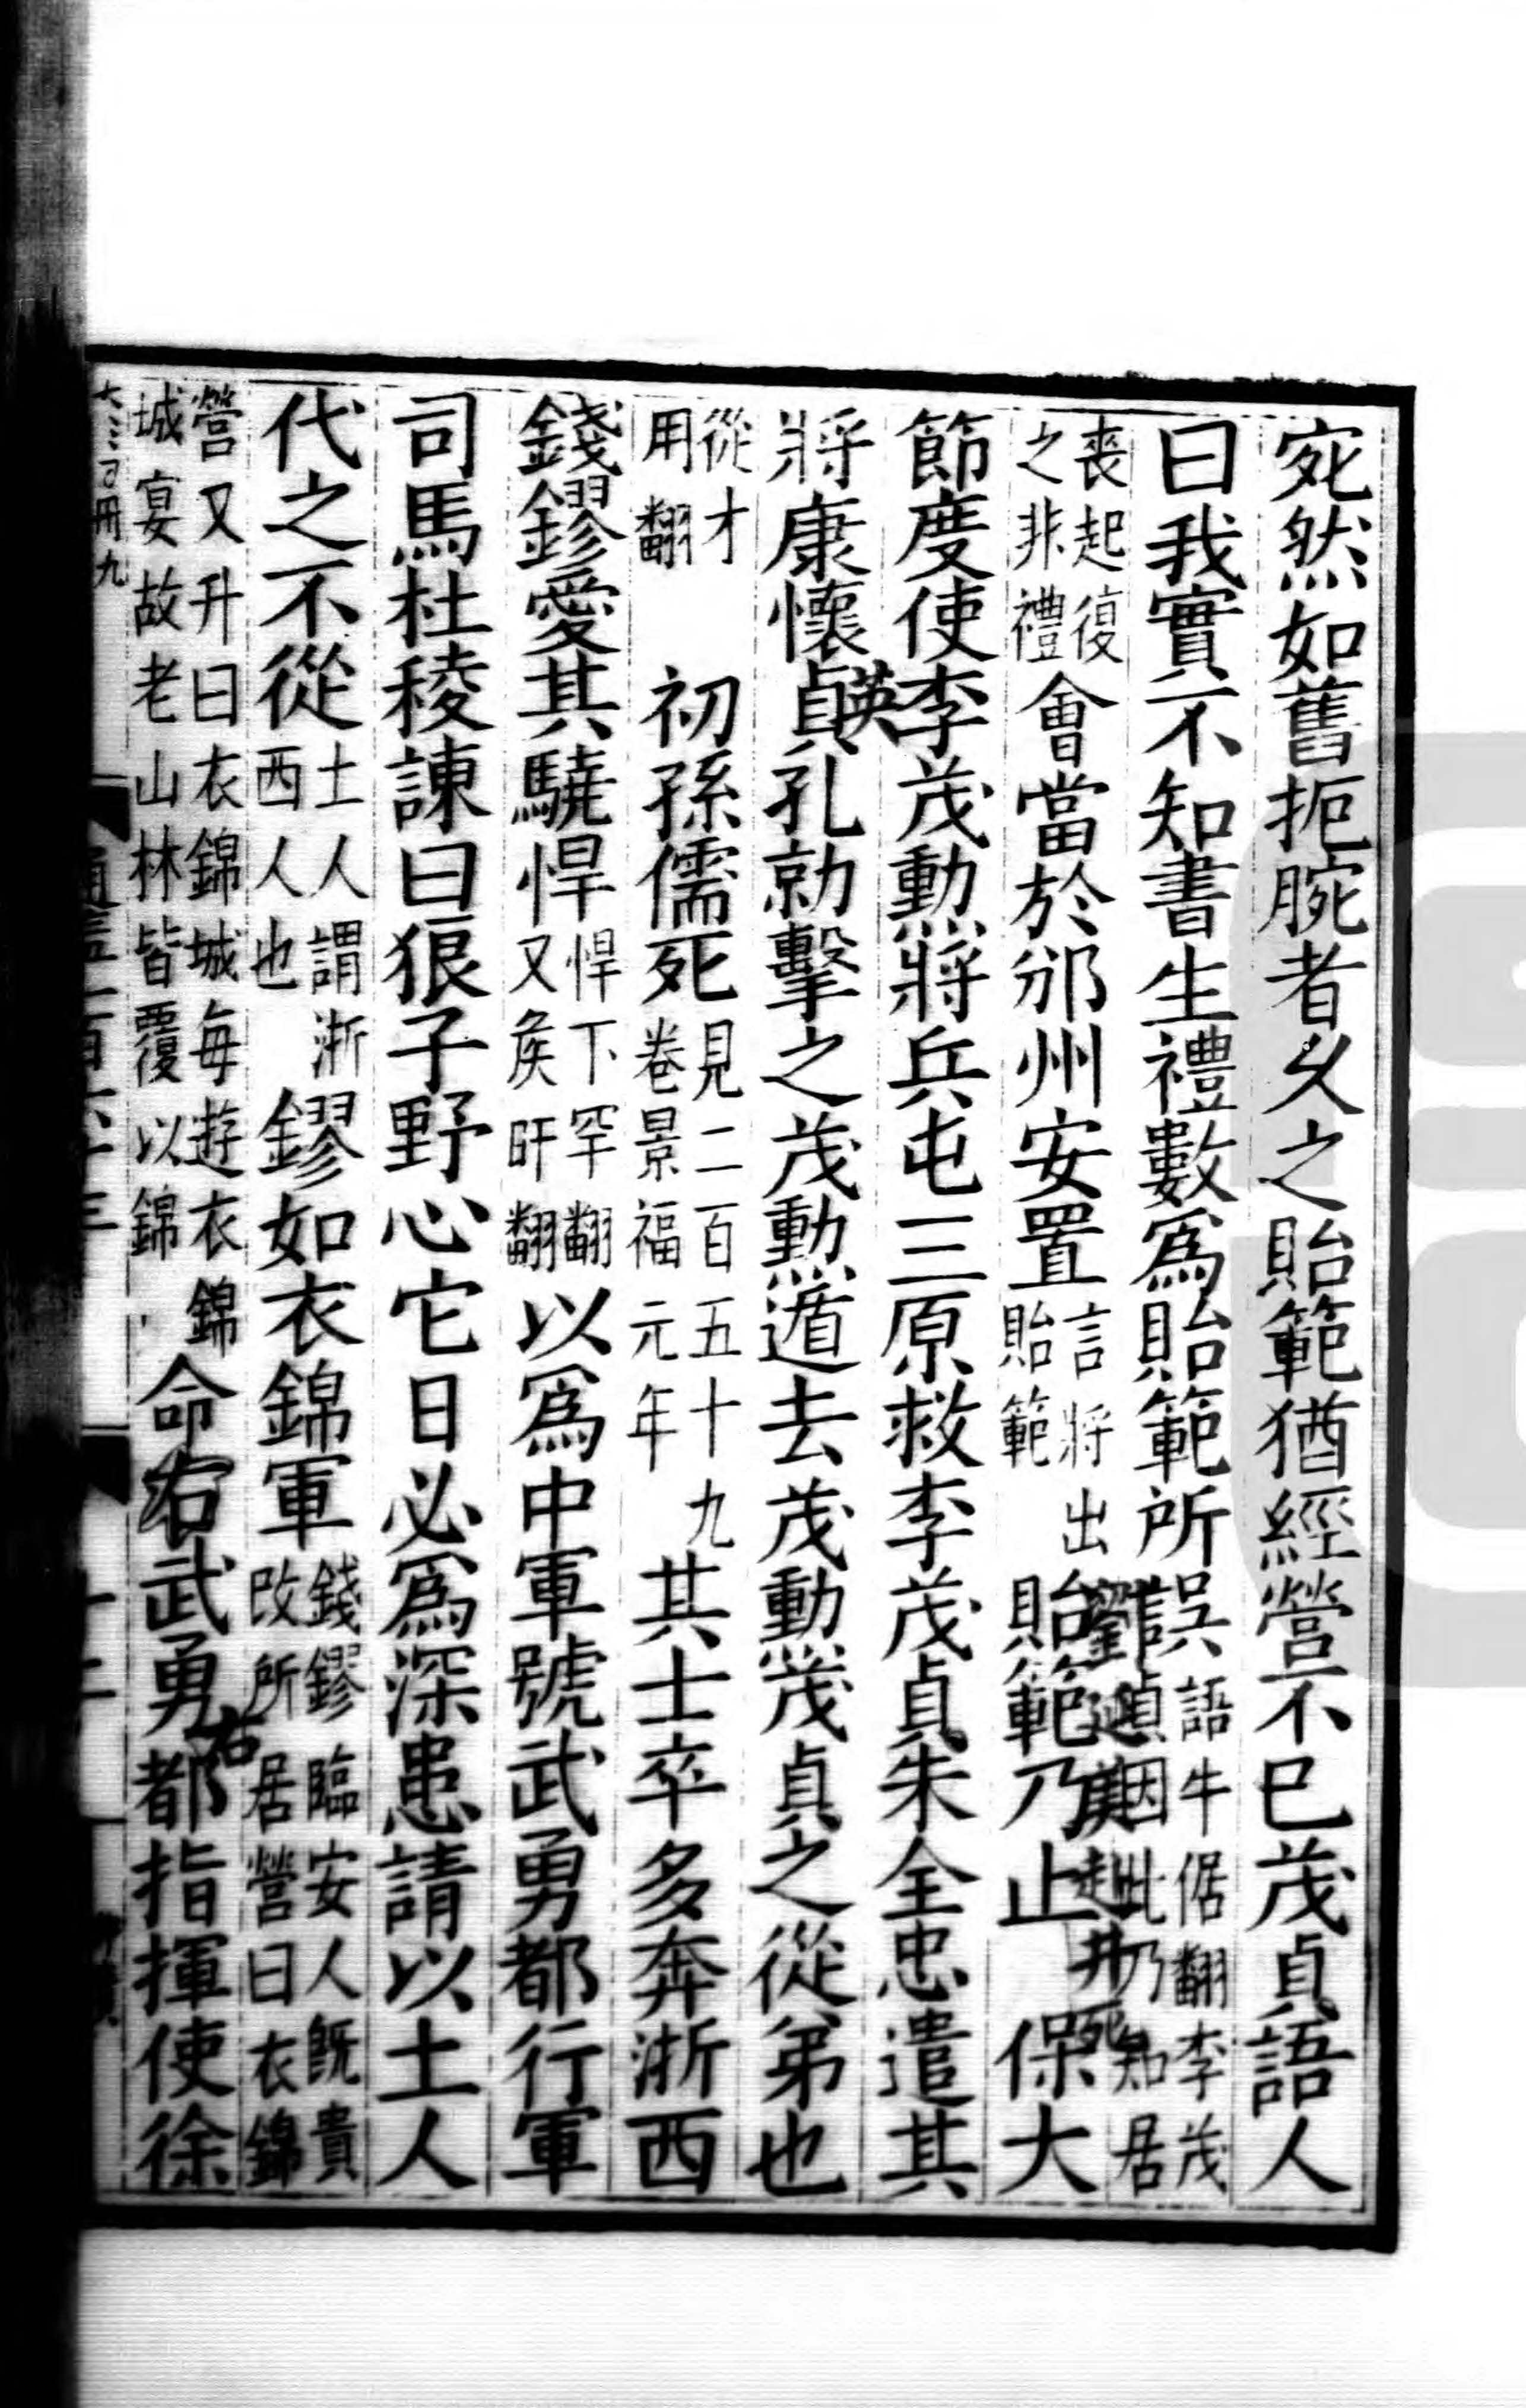 宛然如舊扼腕者乆之貽範猶經營不已茂貞語人
曰我實不知書生禮數爲貽範所誤語牛倨翻李茂貞因此乃知居
喪起復之非禮會當於邠州安置言將出貽範貽範乃止保大
節度使李茂勳將兵屯三原救李茂貞朱全忠遣其
將康懷貞孔勍擊之茂勳遁去茂勳茂貞之從弟也
從才用翻初孫儒死見二百五十九卷景福元年其士卒多奔浙西
錢鏐愛其驍悍悍下罕翻又矦旰翻以爲中軍號武勇都行軍
司馬杜稜諫曰狼子野心它日必爲深患請以土人
代之不從土人謂浙西人也鏐如衣錦軍錢鏐臨安人旣貴改所居營曰衣錦
營又升曰衣錦城每遊衣錦城宴故老山林皆覆以錦命右武勇都指揮使徐